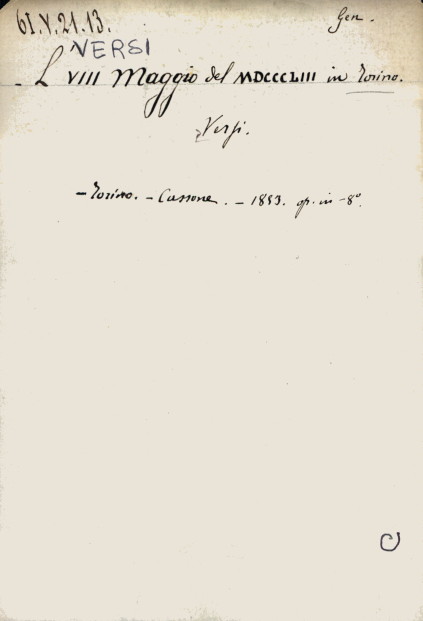 61.V.21.13. Gen.
VERSI
L VIII Maggio del MDCCCLIII in Torino.
Versi.
– Torino. – Cassone. – 1853. op. in -8°.
C